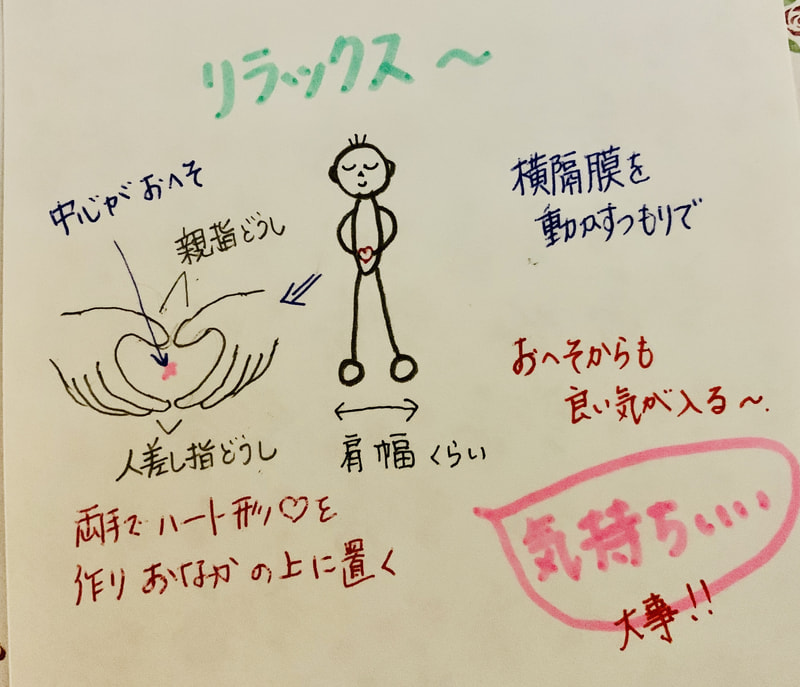 リラックス〜
中心がおへそ
親指どうし
人差し指どうし
肩幅くらい
横隔膜を
動かすつもりで
おへそからも
良い気が入る〜.
両手でハート形♡を
作りおなかの上に置く
気持ちいい
大事!!